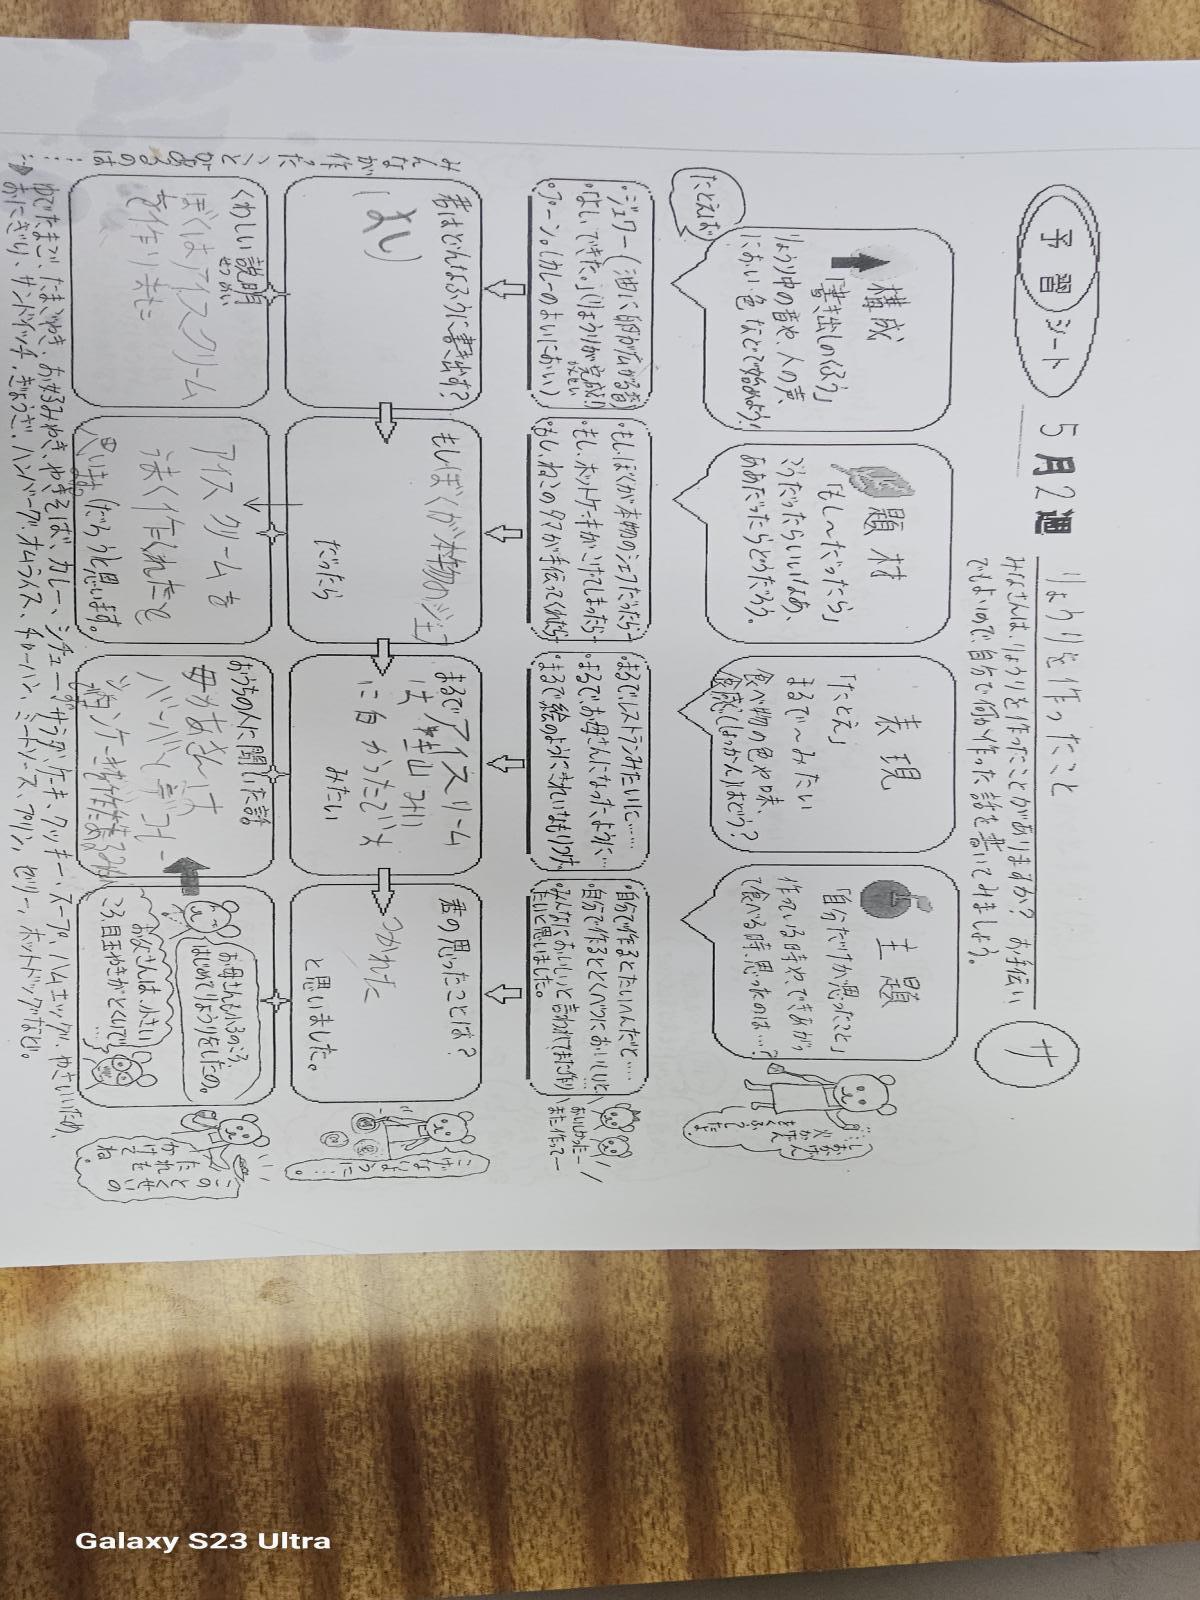 予習シート
5月2週
りょうりを作ったこと
みなさんは、りょうりを作ったことがありますか？お手伝い
でもよいので自分で何か作った話を書いてみましょう。
サ
構成
「書き出しのくふう」
りょうり中の音や、人の声、
におい、色などで始めよう！
たとえば
題材
「もし〜だったら」
こうだったらいいなあ、
ああだったらどうだろう。
表現
「たとえ」
まるで〜みたい
食べ物の色や味、
食感（しょっかん）はどう？
主題
「自分だけが思ったこと」
作っている時や、できあがっ
て食べる時、思ったのは…？
・ジュワー（油に卵が広がる音）
・「よし、できた。」（りょうりが完成！）
・プーン。（カレーのよいにおい）
・もし、ぼくが本物のシェフだったら…
・もし、ホットケーキがこげてしまったら…
・もし、ねこのタマが手伝ってくれたら…
・まるでレストランみたいに……
・まるで、お母さんになったように…
・まるで絵のようにきれいなもりつけ
・自分で作るとたいへんだと……
・自分で作るととくべつにおいしいと…
・みんなにおいしいと言われてまた作り
たいと思いました。
おいしかったー
また作ってー
君はどんなふうに書き出す？
よし
もしぼくが本物のシェフ
だったら
まるでアイスクリーム
みたい
君の思ったことは？
つかれた
と思いました。
こげないように…。
くわしい説明
せつめい
ぼくはアイスクリーム
を作りました
アイスクリームを
(だろう)と思います。
おうちの人に聞いた話
お母さんは
お母さんも小さいころ、
はじめてりょうりをしたの。
お父さんは、小さい
ころ、目玉やきがとくいで
このかたいのもとくせいだね
みんなが作ったことがあるのは……
ゆでたまご、たまごやき、お好みやき、やきそば、カレー、シチュー、サラダ、ケーキ、クッキー、スープ、ハムエッグ、やさいいため、
おにぎり、サンドイッチ、ぎょうざ、ハンバーグ、オムライス、チャーハン、ミートソース、プリン、ゼリー、ホットドッグなど。
Galaxy S23 Ultra